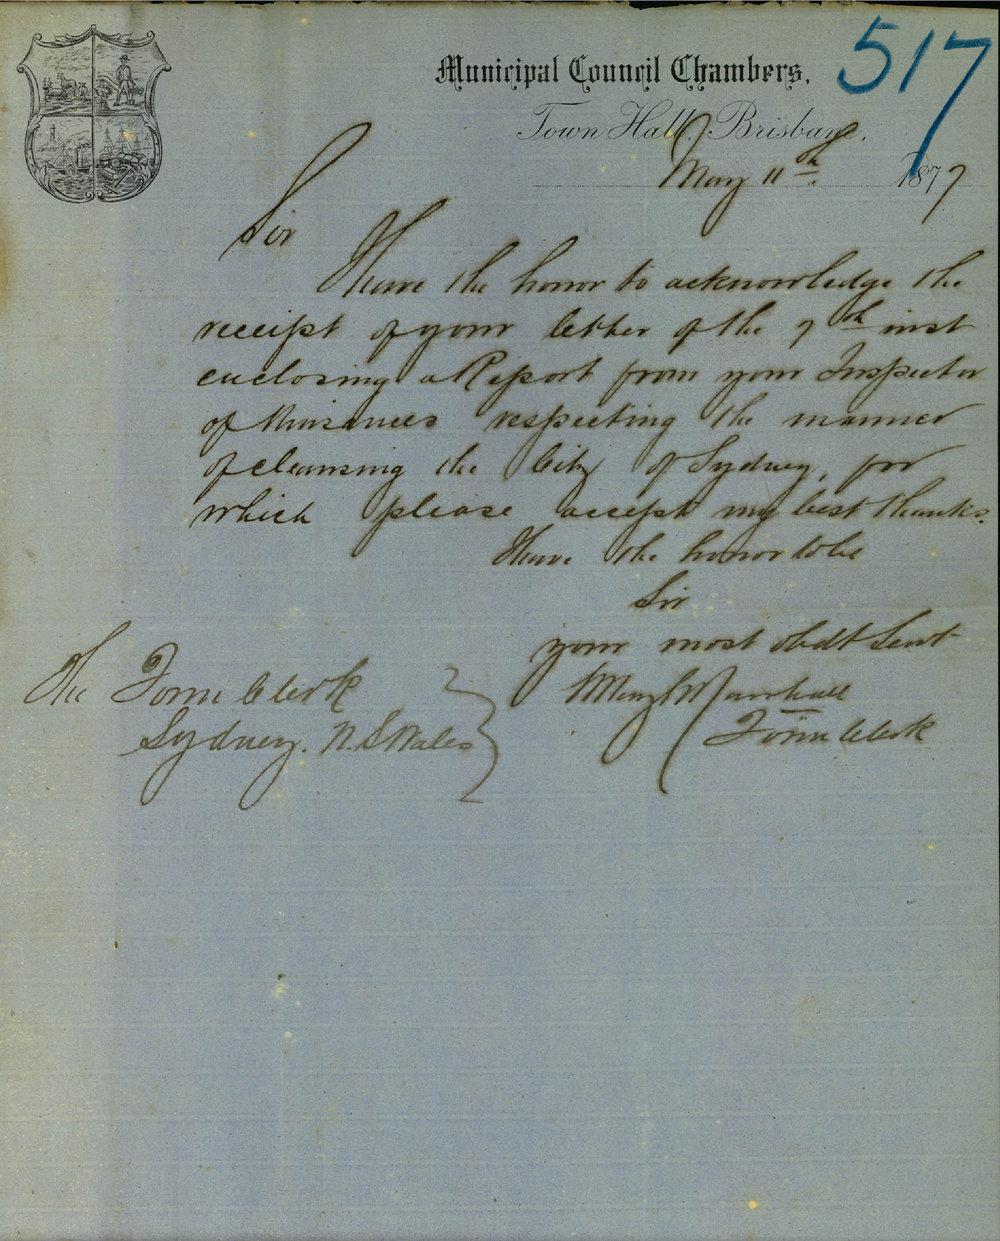 517
Municipal Council Chambers,
Town Hall, Brisbane,
May 11th 1877
Sir
I have the honor to acknowledge the
receipt of your letter of the 7th inst
enclosing a Report from your Inspector
of Nuisances respecting the manner
of cleansing the City of Sydney, for
which please accept my best thanks.
I have the honor to be
Sir
your most obdt Servt
Marshall
Town Clerk
The Town Clerk
Sydney. N. S Wales